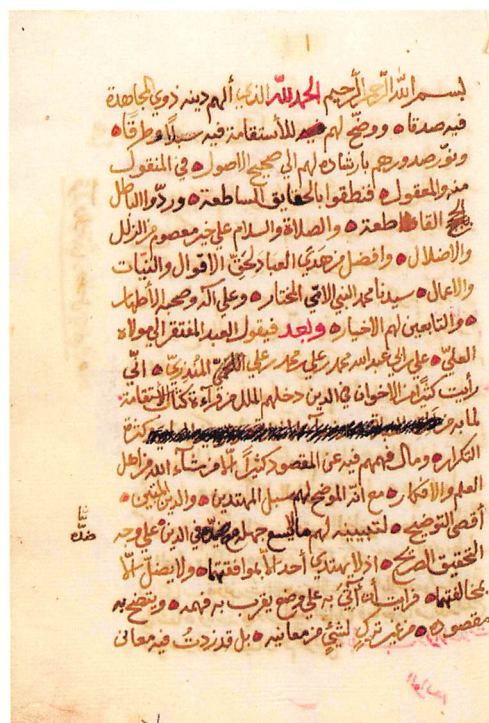 بسم الله الرحمن الرحيم الحمد لله الذي ألهم دينه ذوي المجاهدة
فيه صدقا ووضح لهم للأستقامة فيه سبلًا وطرقًا
ونوّر صدورهم بارشاده لهم الي صحيح الاصول في المنقول
منه والمعقول فنطقوا بالحقايق الساطعة وردّوا الباطل
القاطعة والصلاة والسلام علي خير معصوم من الزلل
والاضلال وافضل من هدي العباد لحق الاقوال والنيّات
والاعمال سيدنا محمد النبي الأمّي المختار وعلي آله وصحبه الأطهار
والتابعين لهم الاخيار وبعد فيقول العبد المفتقر الي مولاه
العليّ علي بن ابي عبد الله محمد بن علي بن محمد بن علي المُنذريّ انّي
رأيت كثيرًا من الاخوان في الدين دخلهم الملل من قرآءة كتاب الاستقامة
لما به من كثرة
التكرار ومال فهمهم فيه عن المقصود كثيرًا الّا من شآء الله من اهل
العلم والافكار مع انّه الموضح لهم سبل المهتدين والدين المتين
أقصي التوضيح لتبيينه لهم ما لايسع جهله في الدين علي وجه
ضدّه
التحقيق الصريح اذ لا يهتدي أحد الّا بموافقتها ولا يضلّ الّا
بمخالفتها فرايت أن آتي به علي وضع يقرب به فهمه ويتضح به
مقصوده من غير تركٍ لشئٍ من معانيه بل قد زدتُ فيه معاني